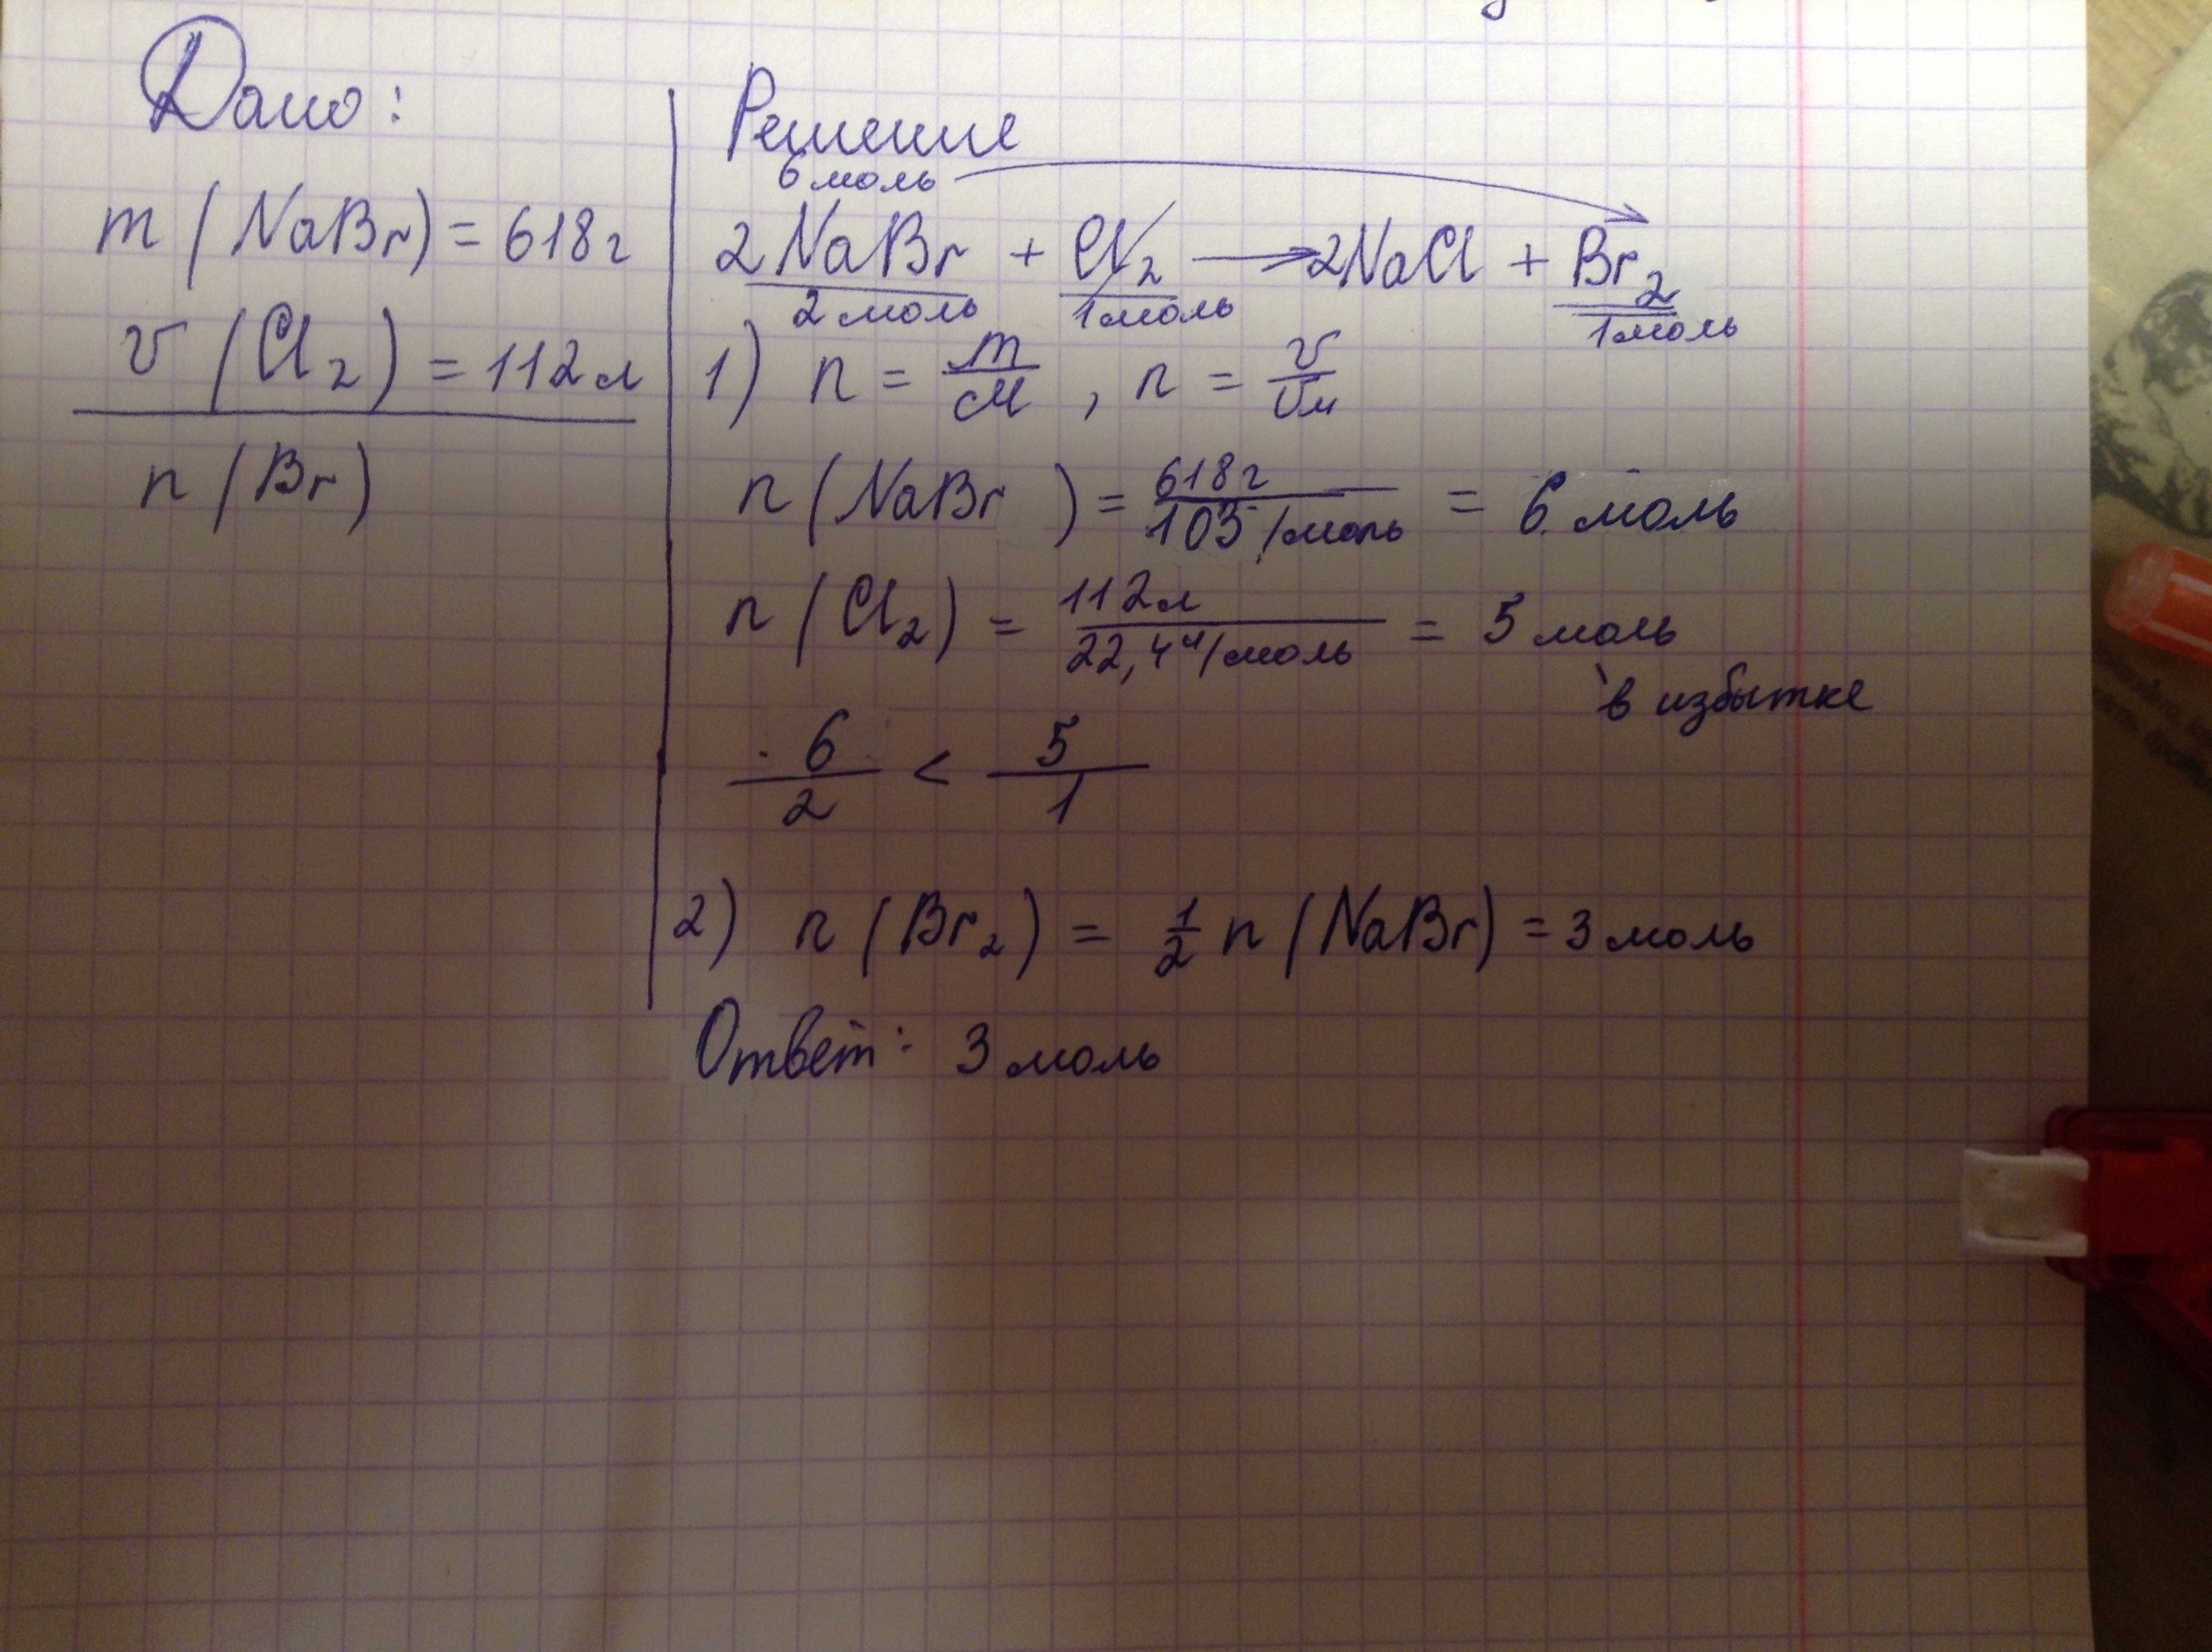 Дано:
m (NaBr) = 618г
v (Cl2) = 112л
n (Br)
Решение
6 моль
2NaBr + Cl2 → 2NaCl + Br2
2 моль 1 моль 1 моль
1) n = m/M , n = v/Vм
n (NaBr ) = 618г / 103 /моль = 6 моль
n (Cl2) = 112л / 22,4 л/моль = 5 моль
в избытке
6/2 < 5/1
2) n (Br2) = 1/2 n (NaBr) = 3 моль
Ответ: 3 моль